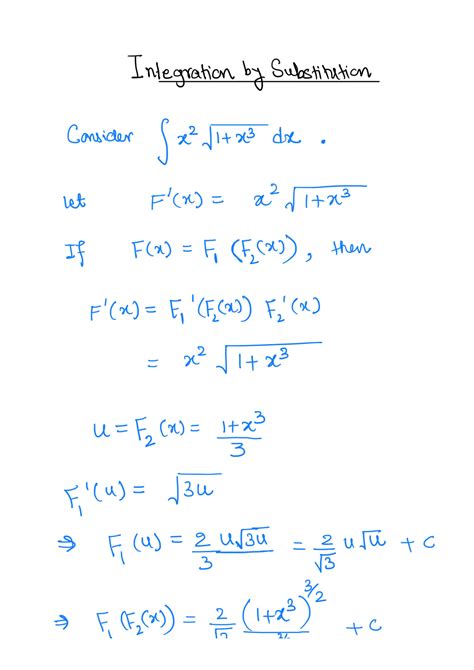 Integration by Substitution
Consider ∫ x² √(1+x³) dx .
let F'(x) = x² √(1+x³)
If F(x) = F₁ (F₂(x)), then
F'(x) = F₁'(F₂(x)) F₂'(x)
= x² √(1+x³)
u = F₂(x) = (1+x³)/3
F₁'(u) = √(3u)
⇒ F₁(u) = 2/3 u√(3u) = 2/√3 u√u + c
⇒ F₁(F₂(x)) = 2 (1+x³)^(3/2) + c